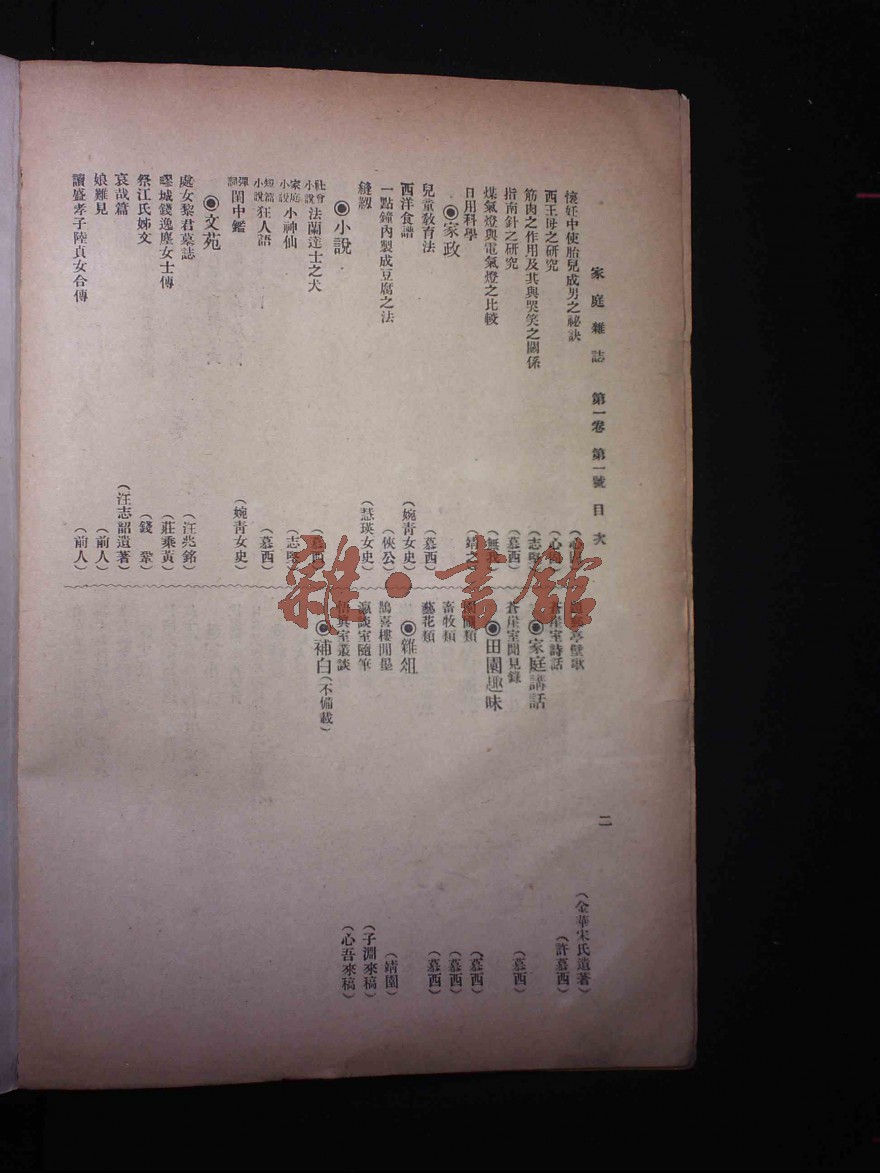 家庭雜誌 第一卷 第一號 目次 二
懷妊中使胎兒成男之祕訣
西王母之研究
筋肉之作用及其與哭笑之關係 (志堅)
指南針之研究 (慕西)
煤氣燈與電氣燈之比較 (無我)
日用科學 (靖之)
◉家政
兒童教育法 (慕西)
西洋食譜 (婉青女史)
一點鐘內製成豆腐之法 (俠公)
縫紉 (慧瑛女史)
◉小說
社會小說 法蘭達士之犬 (慕西)
家庭小說 小神仙 (志堅)
短篇小說 狂人語 (慕西)
彈詞 閨中鑑 (婉青女史)
◉文苑
處女黎君墓誌 (汪兆銘)
嘐城錢逸塵女士傳 (莊乘黃)
祭江氏姊文 (錢 )
哀哉篇 (汪志韶遺著)
娘難見 (前人)
讀盛孝子陸貞女合傳 (前人)
亭壁歌 (金華宋氏遺著)
蒼崖室詩話 (許慕西)
◉家庭講話
蒼崖室聞見錄 (慕西)
◉田園趣味
類 (慕西)
畜牧類 (慕西)
藝花類 (慕西)
◉雜俎
鵲喜樓閒墨 (靖園)
瀛談室隨筆 (子淵來稿)
悟眞室叢談 (心吾來稿)
◉補白(不備載)
雜·書館